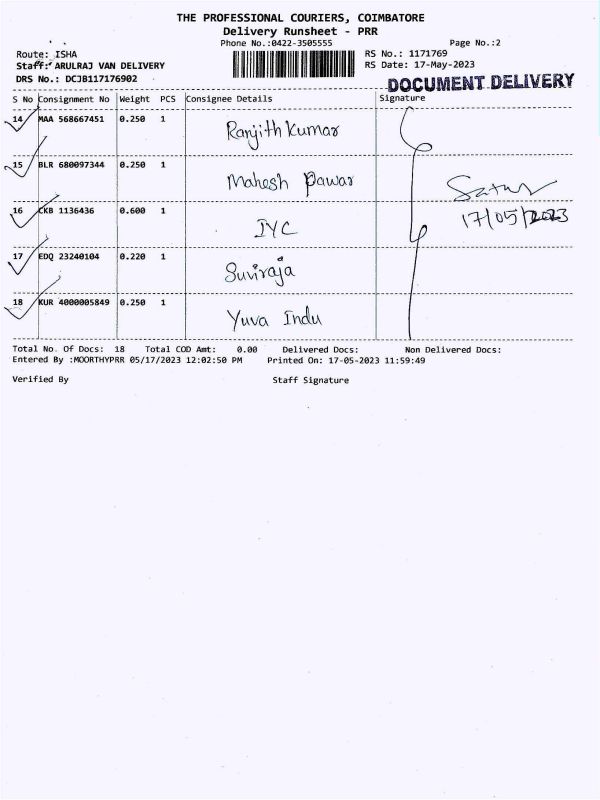 THE PROFESSIONAL COURIERS, COIMBATORE
Delivery Runsheet - PRR
Phone No.:0422-3505555 Page No.:2
Route: ISHA RS No.: 1171769
Staff: ARULRAJ VAN DELIVERY RS Date: 17-May-2023
DRS No.: DCJB117176902 DOCUMENT DELIVERY
S No Consignment No Weight PCS Consignee Details Signature
14 MAA 568667451 0.250 1 Ranjith Kumar
15 BLR 680097344 0.250 1 Mahesh Pawar
16 CKB 1136436 0.600 1 IYC 17/05/2023
17 EDQ 23240104 0.220 1 Suviraja
18 KUR 4000005849 0.250 1 Yuva Indu
Total No. Of Docs: 18 Total COD Amt: 0.00 Delivered Docs: Non Delivered Docs:
Entered By :MOORTHYPRR 05/17/2023 12:02:50 PM Printed On: 17-05-2023 11:59:49
Verified By Staff Signature